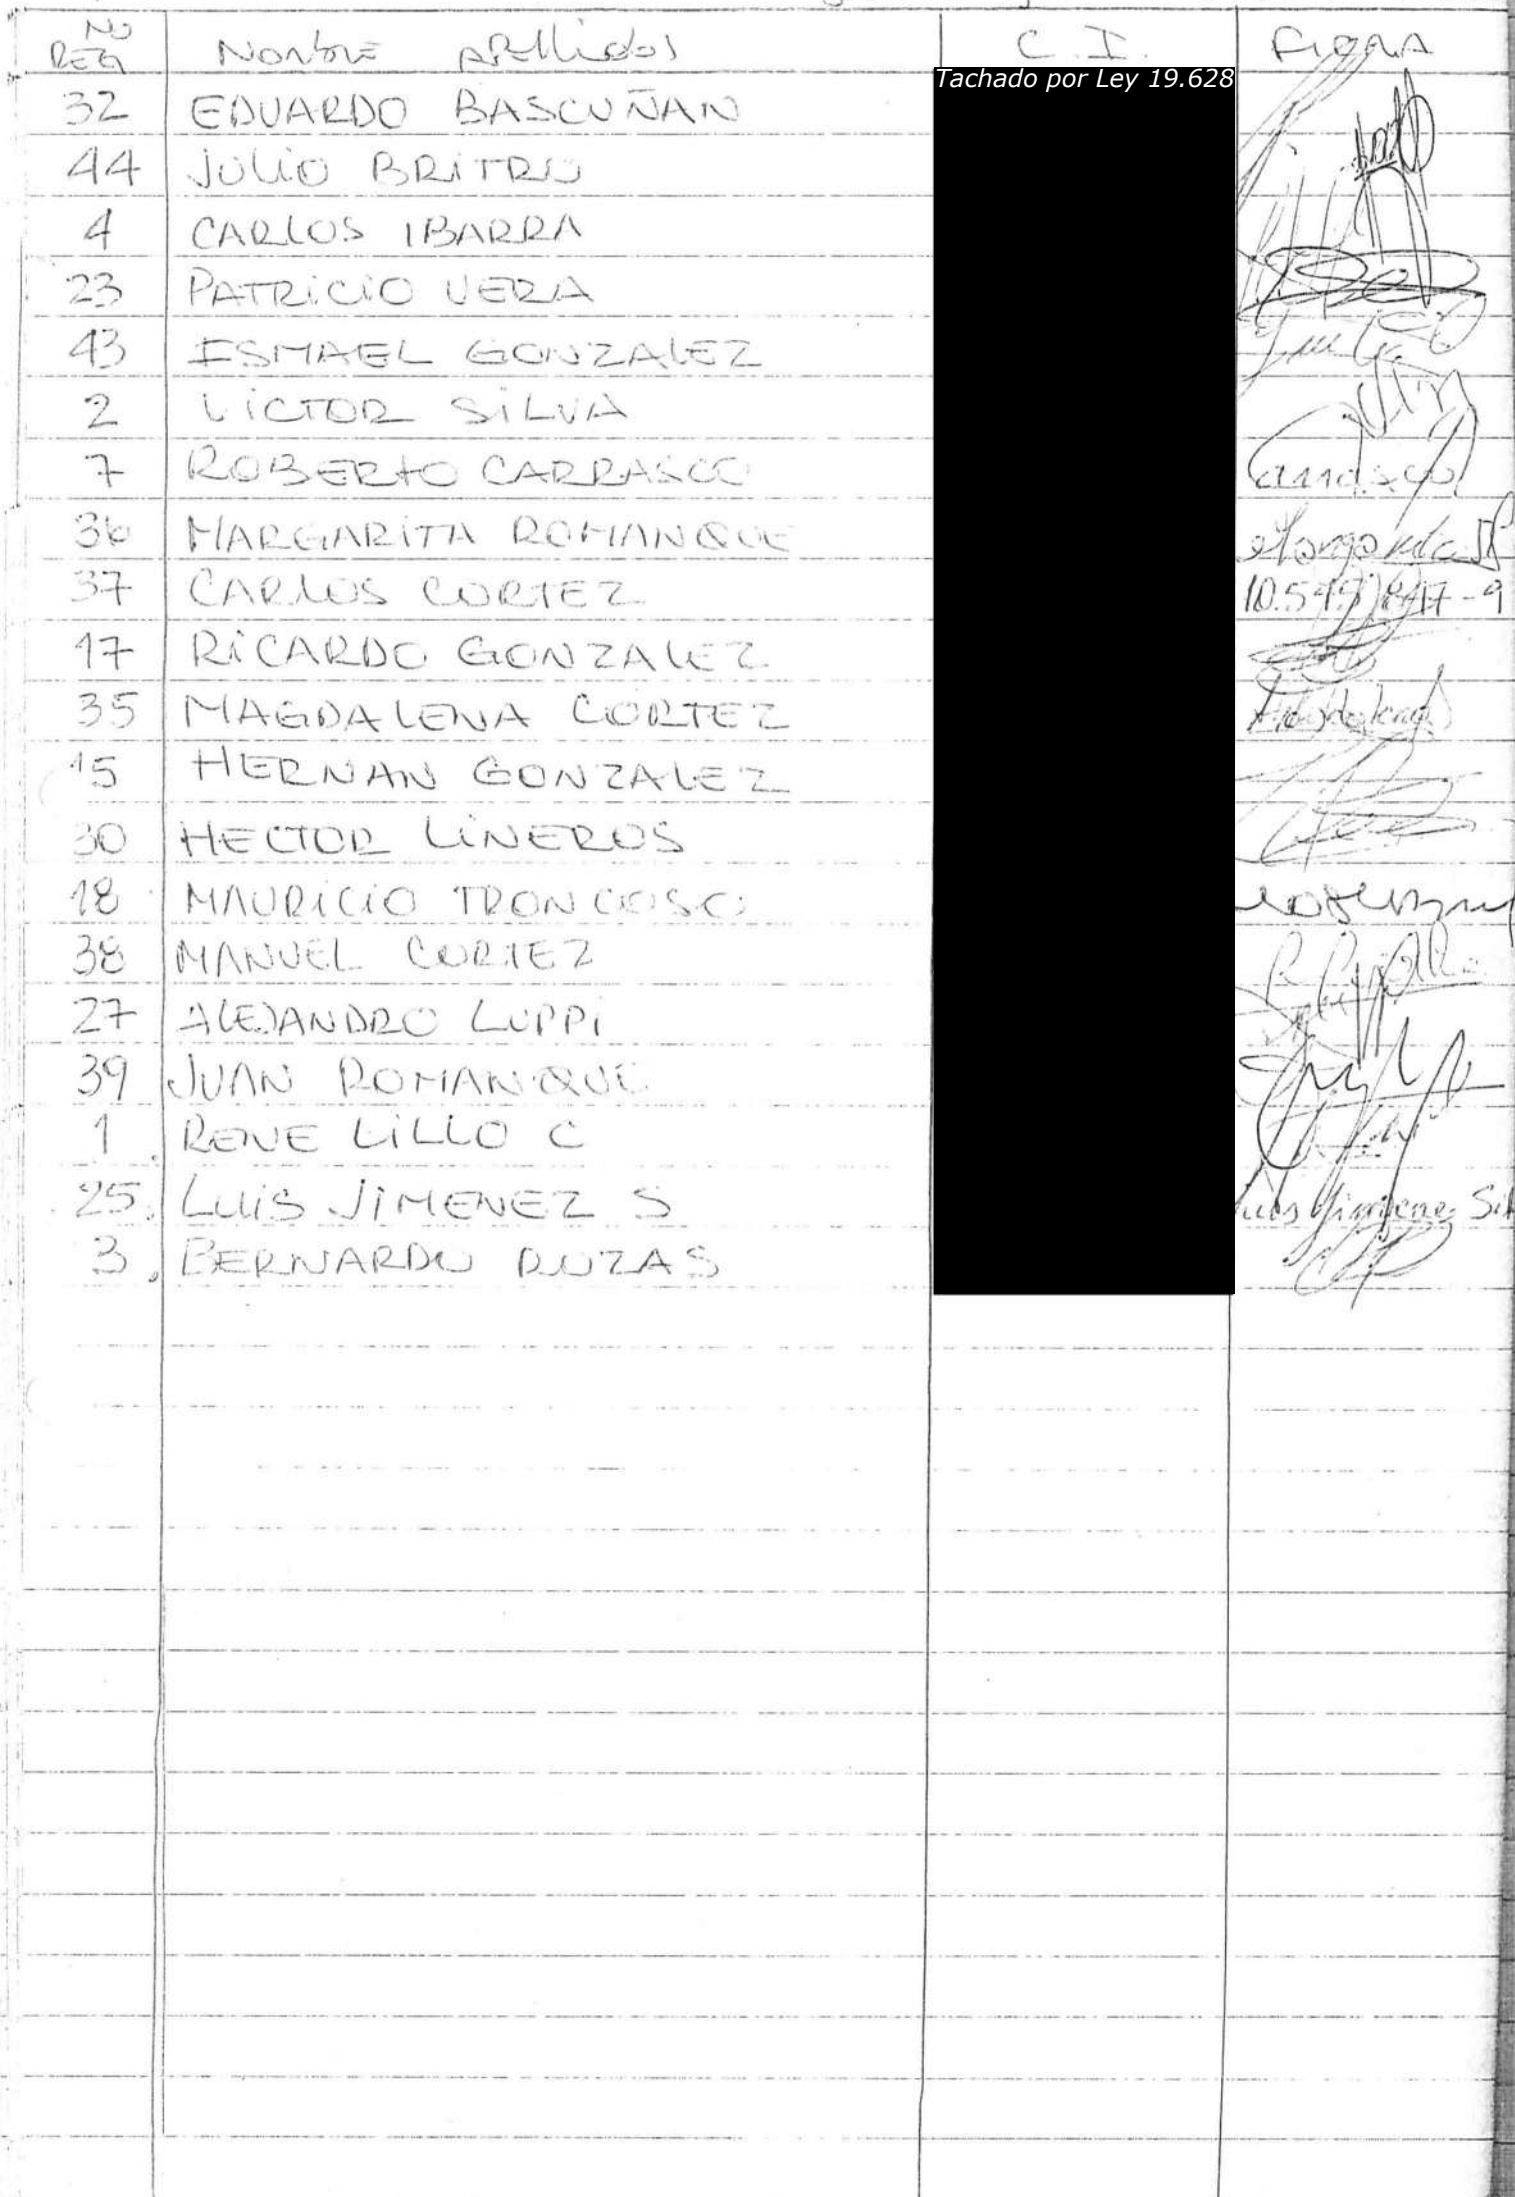 No REG Nombre Apellidos C.I. FIRMA
Tachado por Ley 19.628
32 EDUARDO BASCUÑAN
44 JULIO BRITRO
4 CARLOS IBARRA
23 PATRICIO VERA
43 ISMAEL GONZALEZ
2 VICTOR SILVA
7 ROBERTO CARRASCO Carrasco
36 MARGARITA ROMANQUE Margarita
37 CARLOS CORTEZ
17 RICARDO GONZALEZ
35 MAGDALENA CORTEZ Magdalena
15 HERNAN GONZALEZ
30 HECTOR LINEROS
18 MAURICIO TRONCOSO
38 MANUEL CORTEZ
27 ALEJANDRO LUPPI
39 JUAN ROMANQUE
1 RENE LILLO C
25 LUIS JIMENEZ S Luis Jimenez
3 BERNARDO ROZAS